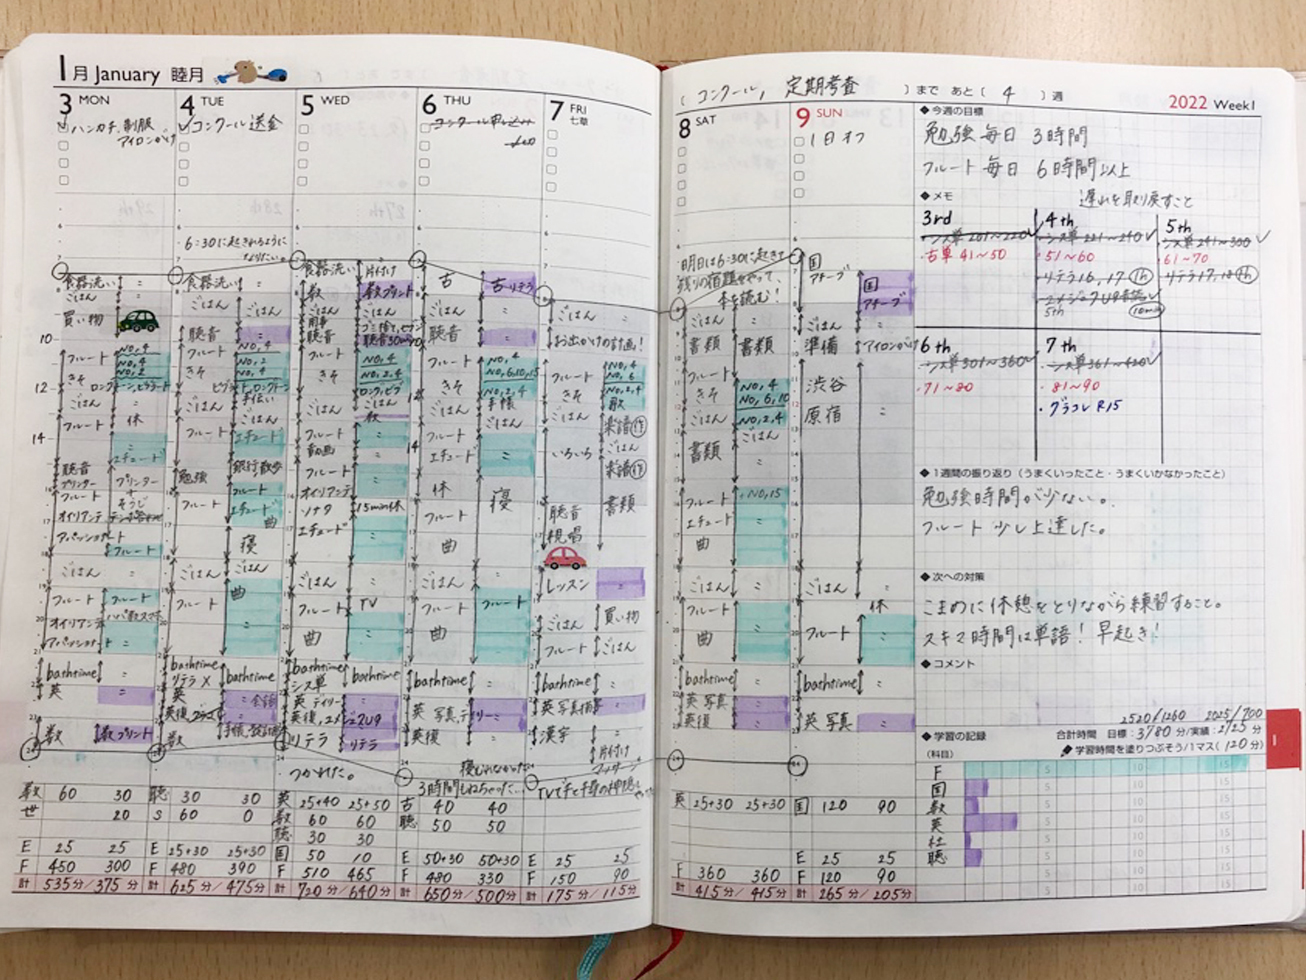 1月 January 睦月
3 MON
ハンカチ、制服
アイロンがけ
4 TUE
コンクール送金
5 WED
6 THU
コンクール申し込み
7 FRI
七草
6:30に起きれるように
なりたい。
食器洗い
ごはん
買い物
10
フルート
No,4
No,4
No,2
きそ
12
ごはん
休
フルート
14
エチュード
聴音
プリンター
プリンター
フルート
そうじ
オイリアンテ
アパッショナート
フルート
ごはん
フルート
フルート
オイリアンテ
アパッショナート
bathtime
英
数
数プリント
食器洗い
ごはん
聴音
フルート
No,4
No,2
No,4
きそ
手伝い
ごはん
ごはん
フルート
エチュード
勉強
銀行散歩
フルート
フルート
エチュード
曲
寝
ごはん
ごはん
曲
フルート
bathtime
リテラ X
英
数
食器洗い
片付け
数
数プリント
ごはん
聴音
聴音30min
フルート
No,4
No,2,4
きそ
ごはん
数
フルート
動画
フルート
オイリアンテ
ソナタ
15min休
エチュード
ごはん
フルート
TV
曲
bathtime
bathtime
シス単
英 デイリー
リテラ
リテラ
つかれた。
古
古リテラ
ごはん
聴音
フルート
No,4
No,6,10,15
No,2,4
きそ
手帳
ごはん
ごはん
フルート
エチュード
休
寝
フルート
曲
ごはん
フルート
フルート
曲
bathtime
英 写真,デイリー
英復
3時間もねちゃった…
ごはん
お出かけの計画!
フルート
No,4
No,6
No,2,4
きそ
歌
ごはん
楽譜作
いろいろ
ごはん
楽譜作
書類
聴音
視唱
レッスン
買い物
ごはん
フルート
ごはん
bathtime
英 写真
漢字
片付け
数 60 30
世 20
E 25 25
F 450 300
計 535分/375分
聴 30 30
S 60 0
E 25+30 25+30
F 480 390
計 625分/475分
英 25+40 25+50
数 60 60
聴 30 30
国 50 10
F 510 465
計 720分/640分
古 40 40
聴 50 50
E 50+30 50+30
F 480 330
計 650分/500分
E 25 25
F 150 90
計 175分/115分
(コンクール, 定期考査)まで あと(4)週
2022 Week1
8 SAT
9 SUN
1日オフ
明日は6:30に起きて
残りの宿題をやって、
本を読む!
ごはん
書類
書類
フルート
No,4
No,6,10
No,2,4
きそ
ごはん
ごはん
書類
フルート
No,15
エチュード
曲
ごはん
フルート
曲
bathtime
英 写真
英復
国
アチーブ
国
アチーブ
ごはん
準備
アイロンがけ
渋谷
原宿
ごはん
休
フルート
bathtime
英 写真
英 25+30 25+30
F 360 360
計 415分/415分
国 120 90
E 25 25
F 120 90
計 265分/205分
◆今週の目標
勉強 毎日 3時間
フルート 毎日 6時間以上
◆メモ
遅れを取り戻すこと
3rd
シス単 201~220
古単 41~50
4th
シス単 221~240
51~60
リテラ16,17 1h
5th
5th
シス単 241~300
61~70
リテラ17,18 1h
6th
シス単301~360
71~80
7th
シス単361~420
・81~90
・グラコレ R15
◆1週間の振り返り(うまくいったこと・うまくいかなかったこと)
勉強時間が少ない。
フルート 少し上達した。
◆次への対策
こまめに休憩をとりながら練習すること。
スキマ時間は単語! 早起き!
◆コメント
2520/1260 2025/700
◆学習の記録
合計時間 目標:3780分/実績:2725分
(科目)
学習時間を塗りつぶそう/1マス(120分)
F
国
数
英
社
聴
5 10 15